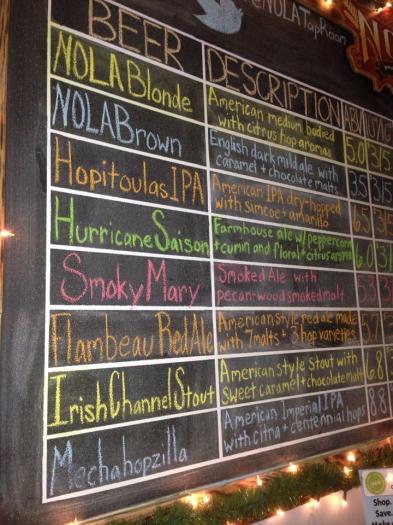 @NOLATapRoom
NO
BEER
DESCRIPTION
NOLA Blonde
American medium bodied
with citrus hop aromas
5.0
NOLA Brown
English dark mild ale with
caramel + chocolate malts
3.5
Hopitoulas IPA
American IPA dry-hopped
with simcoe + amarillo
6.5
Hurricane Saison
Farmhouse ale w/ peppercorn
+ cumin and floral + citrus aroma
6.0
Smoky Mary
Smoked Ale with
pecan-wood smoked malt
5.3
Flambeau Red Ale
American style red ale made
with 7 malts + 3 hop varieties
5.7
Irish Channel Stout
American style stout with
sweet caramel + chocolate malt
6.8
Mechahopzilla
American Imperial IPA
with citra + centennial hops
8.8
Shop.
Save.